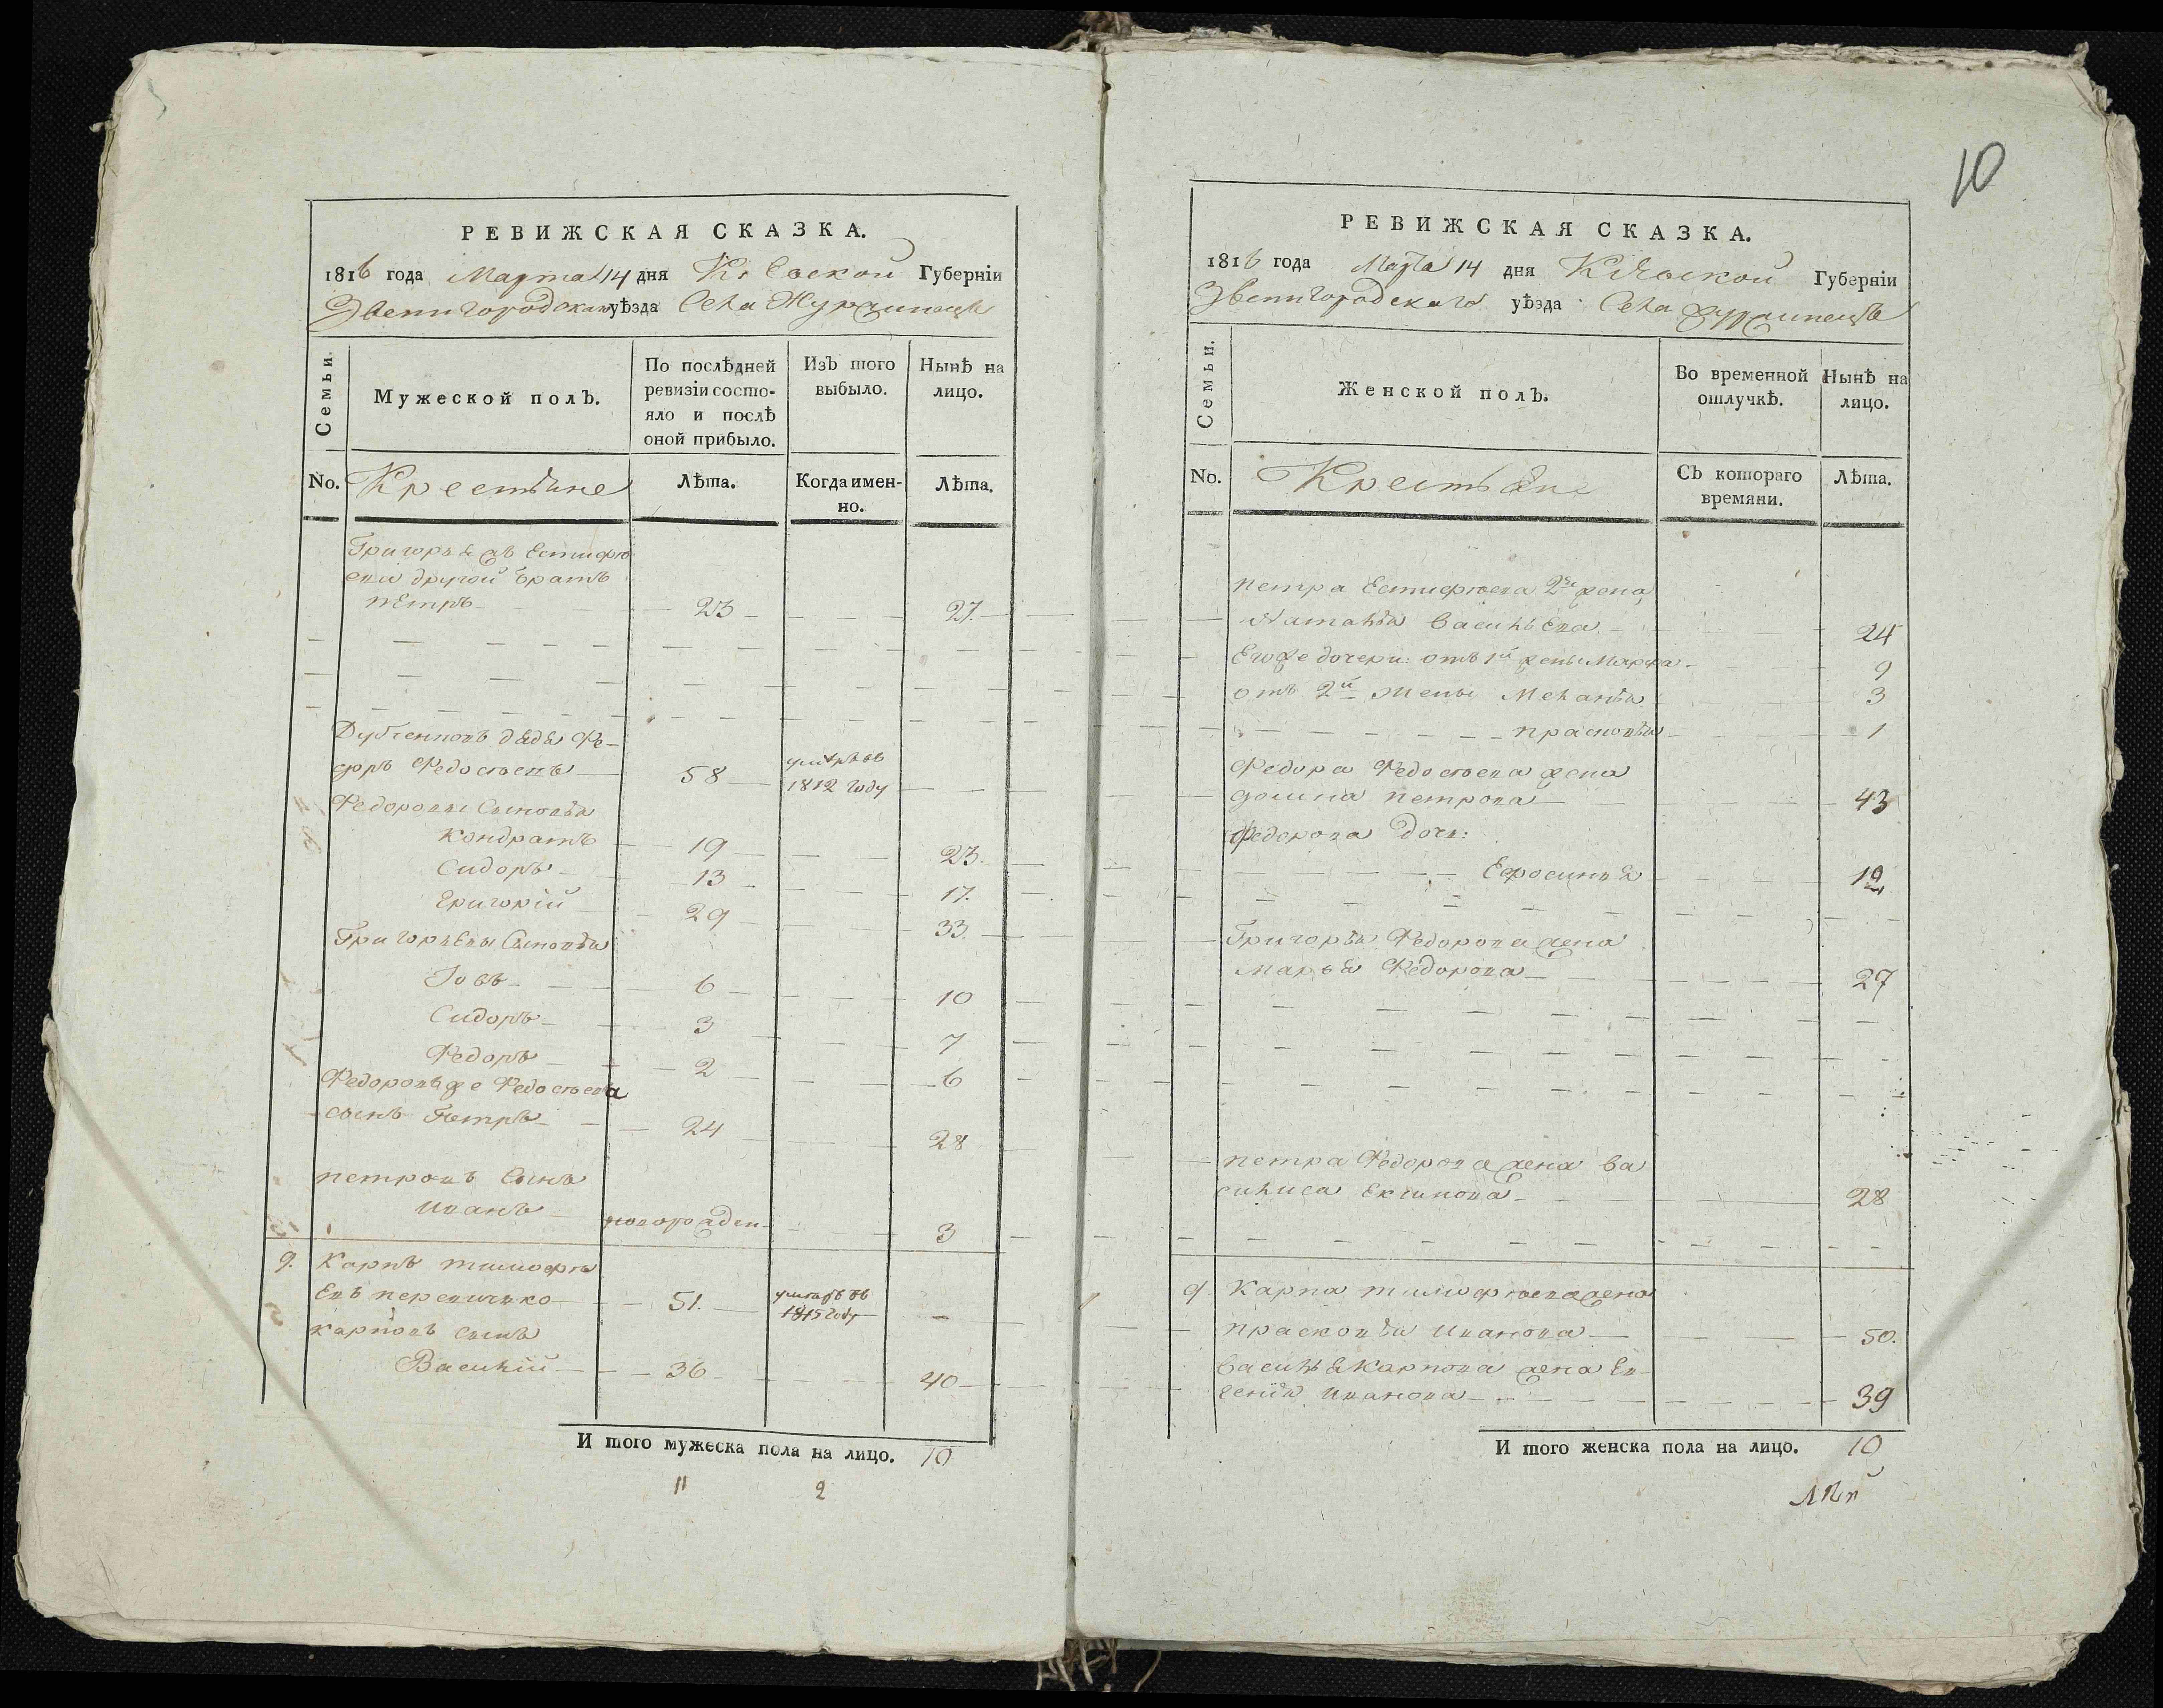 РЕВИЖСКАЯ СКАЗКА.
1816 года Марта 14 дня Кіевской Губерніи
Звенигородскаго уѣзда Села Журжинецъ
Семьи.
Мужеской полъ.
По послѣдней ревизіи состо-
яло и послѣ
оной прибыло.
Изъ того
выбыло.
Нынѣ на
лицо.
No.
Крестьяне
Лѣта.
Когда имен-
но.
Лѣта.
Григорья Евтифѣ
ева другой братъ
пЕтръ 23 27.
дядя Фе-
доръ Федосѣевъ 58 умре въ 1812 году
Федоровы Сыновья
Кондратъ 19 23.
Сидоръ 13 17.
Григорій 29 33.
ГригорьЕвы Сыновья
Іовъ 6 10
Сидоръ 3 7
Федоръ 2 6
Федоровъ же Федосѣева
сынъ Петръ 24 28
петровъ Сынъ
Иванъ новорожден 3
9. Карпъ тимофѣ
Евъ перепичко 51. умре въ 1815 году
карповъ сынъ
Василій 36 40
И того мужеска пола на лицо. 10
11 2
10
РЕВИЖСКАЯ СКАЗКА.
1816 года Марта 14 дня Кіевской Губерніи
Звенигородскаго уѣзда Села Журжинецъ
Семьи.
Женской полъ.
Во временной
отлучкѣ.
Нынѣ на
лицо.
No.
Крестьяне
Съ котораго
времяни.
Лѣта.
петра Евтифѣева 2я жена
Наталья васильЕва 24
Егоже дочери: отъ 1й жены Марфа 9
отъ 2й жены Меланья 3
прасковья 1
Федора Федосѣева жена
домна петрова 43
Федорова дочь:
Ефросинья 12
Григорья Федорова жена
марья Федорова 27
петра Федорова жена ва
силиса Екимова 28
9 Карпа тимофѣева жена
прасковья Иванова 50.
васильЯ Карпова жена Ев-
генія Иванова 39
И того женска пола на лицо. 10